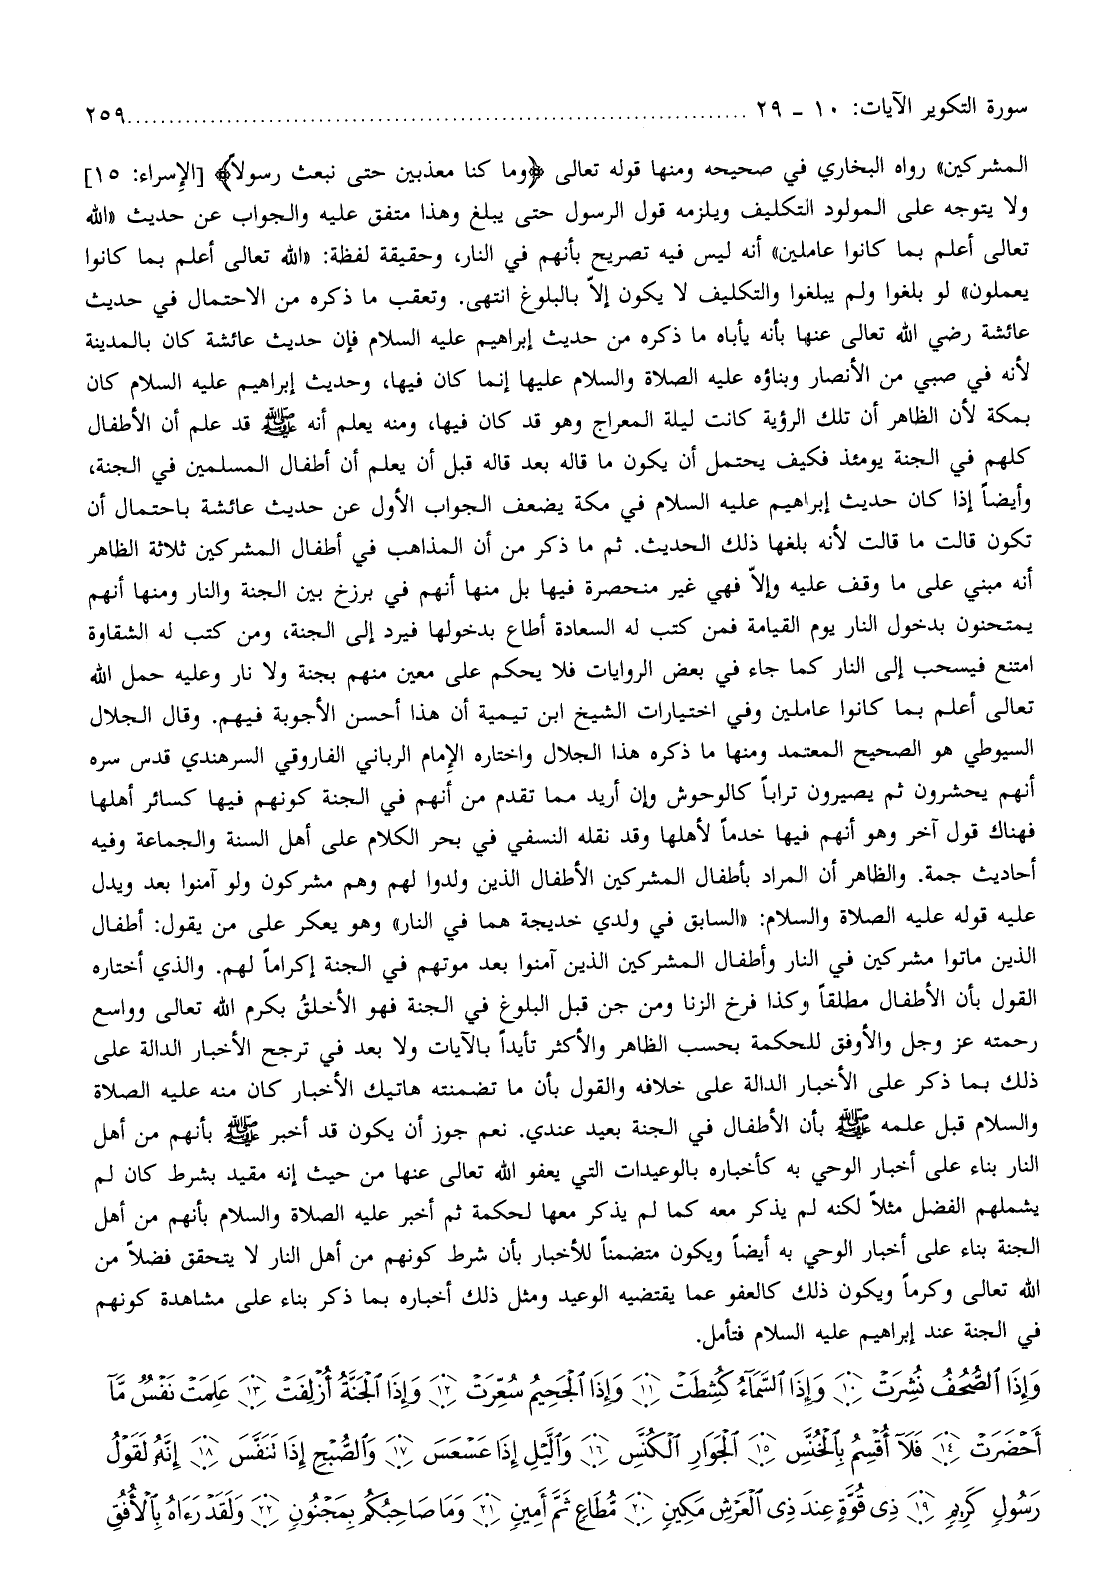 سورة التكوير الآيات: ١٠ ـ ٢٩ ........................................................................... ٢٥٩
المشركين» رواه البخاري في صحيحه ومنها قوله تعالى ﴿وما كنا معذبين حتى نبعث رسولاً﴾ [الإسراء: ١٥]
ولا يتوجه على المولود التكليف ويلزمه قول الرسول حتى يبلغ وهذا متفق عليه والجواب عن حديث «الله
تعالى أعلم بما كانوا عاملين» أنه ليس فيه تصريح بأنهم في النار، وحقيقة لفظة: «الله تعالى أعلم بما كانوا
يعملون» لو بلغوا ولم يبلغوا والتكليف لا يكون إلاّ بالبلوغ انتهى. وتعقب ما ذكره من الاحتمال في حديث
عائشة رضي الله تعالى عنها بأنه يأباه ما ذكره من حديث إبراهيم عليه السلام فإن حديث عائشة كان بالمدينة
لأنه في صبي من الأنصار وبناؤه عليه الصلاة والسلام عليها إنما كان فيها، وحديث إبراهيم عليه السلام كان
بمكة لأن الظاهر أن تلك الرؤية كانت ليلة المعراج وهو قد كان فيها، ومنه يعلم أنه ﷺ قد علم أن الأطفال
كلهم في الجنة يومئذ فكيف يحتمل أن يكون ما قاله بعد قاله قبل أن يعلم أن أطفال المسلمين في الجنة،
وأيضاً إذا كان حديث إبراهيم عليه السلام في مكة يضعف الجواب الأول عن حديث عائشة باحتمال أن
تكون قالت ما قالت لأنه بلغها ذلك الحديث. ثم ما ذكر من أن المذاهب في أطفال المشركين ثلاثة الظاهر
أنه مبني على ما وقف عليه وإلاّ فهي غير منحصرة فيها بل منها أنهم في برزخ بين الجنة والنار ومنها أنهم
يمتحنون بدخول النار يوم القيامة فمن كتب له السعادة أطاع بدخولها فيرد إلى الجنة، ومن كتب له الشقاوة
امتنع فيسحب إلى النار كما جاء في بعض الروايات فلا يحكم على معين منهم بجنة ولا نار وعليه حمل الله
تعالى أعلم بما كانوا عاملين وفي اختيارات الشيخ ابن تيمية أن هذا أحسن الأجوبة فيهم. وقال الجلال
السيوطي هو الصحيح المعتمد ومنها ما ذكره هذا الجلال واختاره الإمام الرباني الفاروقي السرهندي قدس سره
أنهم يحشرون ثم يصيرون تراباً كالوحوش وإن أريد مما تقدم من أنهم في الجنة كونهم فيها كسائر أهلها
فهناك قول آخر وهو أنهم فيها خدماً لأهلها وقد نقله النسفي في بحر الكلام على أهل السنة والجماعة وفيه
أحاديث جمة. والظاهر أن المراد بأطفال المشركين الأطفال الذين ولدوا لهم وهم مشركون ولو آمنوا بعد ويدل
عليه قوله عليه الصلاة والسلام: «السابق في ولدي خديجة هما في النار» وهو يعكر على من يقول: أطفال
الذين ماتوا مشركين في النار وأطفال المشركين الذين آمنوا بعد موتهم في الجنة إكراماً لهم. والذي أختاره
القول بأن الأطفال مطلقاً وكذا فرخ الزنا ومن جن قبل البلوغ في الجنة فهو الأخلقُ بكرم الله تعالى وواسع
رحمته عز وجل والأوفق للحكمة بحسب الظاهر والأكثر تأيداً بالآيات ولا بعد في ترجح الأخبار الدالة على
ذلك بما ذكر على الأخبار الدالة على خلافه والقول بأن ما تضمنته هاتيك الأخبار كان منه عليه الصلاة
والسلام قبل علمه ﷺ بأن الأطفال في الجنة بعيد عندي. نعم جوز أن يكون قد أخبر ﷺ بأنهم من أهل
النار بناء على أخبار الوحي به كأخباره بالوعيدات التي يعفو الله تعالى عنها من حيث إنه مقيد بشرط كان لم
يشملهم الفضل مثلاً لكنه لم يذكر معه كما لم يذكر معها لحكمة ثم أخبر عليه الصلاة والسلام بأنهم من أهل
الجنة بناء على أخبار الوحي به أيضاً ويكون متضمناً للأخبار بأن شرط كونهم من أهل النار لا يتحقق فضلاً من
الله تعالى وكرماً ويكون ذلك كالعفو عما يقتضيه الوعيد ومثل ذلك أخباره بما ذكر بناء على مشاهدة كونهم
في الجنة عند إبراهيم عليه السلام فتأمل.
وَإِذَا ٱلصُّحُفُ نُشِرَتْ ١٠ وَإِذَا ٱلسَّمَآءُ كُشِطَتْ ١١ وَإِذَا ٱلْجَحِيمُ سُعِّرَتْ ١٢ وَإِذَا ٱلْجَنَّةُ أُزْلِفَتْ ١٣ عَلِمَتْ نَفْسٌ مَّآ
أَحْضَرَتْ ١٤ فَلَآ أُقْسِمُ بِٱلْخُنَّسِ ١٥ ٱلْجَوَارِ ٱلْكُنَّسِ ١٦ وَٱلَّيْلِ إِذَا عَسْعَسَ ١٧ وَٱلصُّبْحِ إِذَا تَنَفَّسَ ١٨ إِنَّهُۥ لَقَوْلُ
رَسُولٍ كَرِيمٍ ١٩ ذِى قُوَّةٍ عِندَ ذِى ٱلْعَرْشِ مَكِينٍ ٢٠ مُّطَاعٍ ثَمَّ أَمِينٍ ٢١ وَمَا صَاحِبُكُم بِمَجْنُونٍ ٢٢ وَلَقَدْ رَءَاهُ بِٱلْأُفُقِ